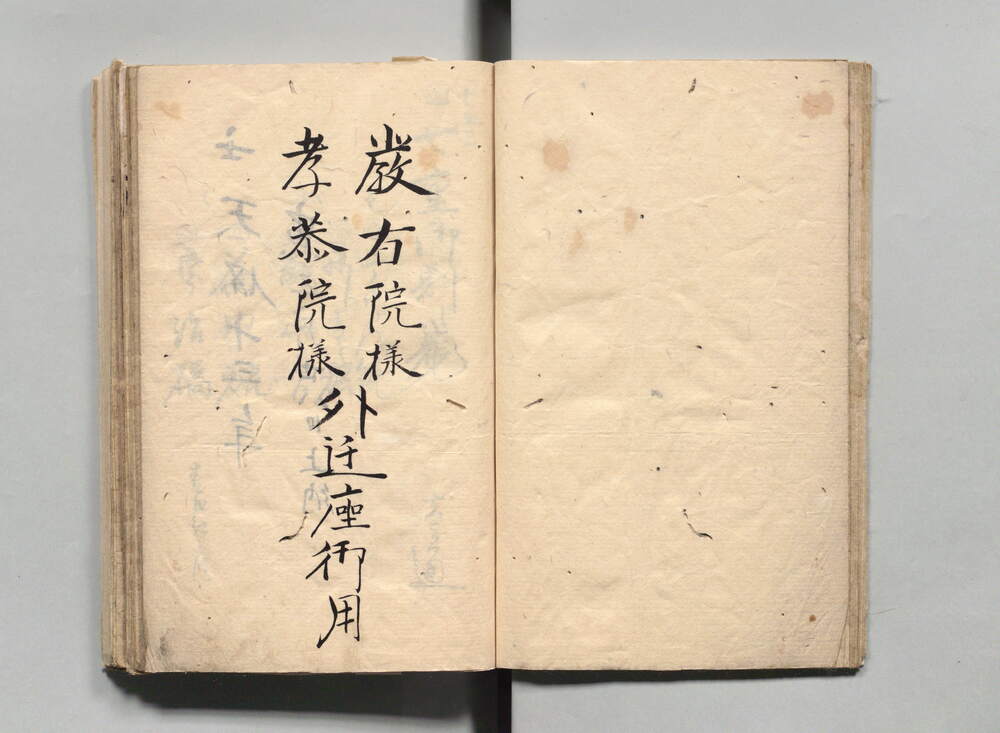 嚴有院様
孝恭院様
外遷座御用